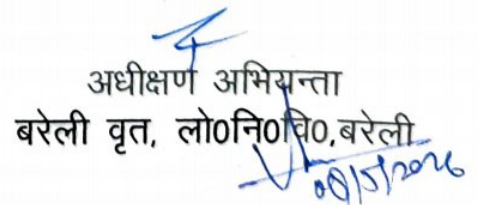 अधीक्षण अभियन्ता
बरेली वृत, लो0नि0वि0,बरेली
08/5/2026